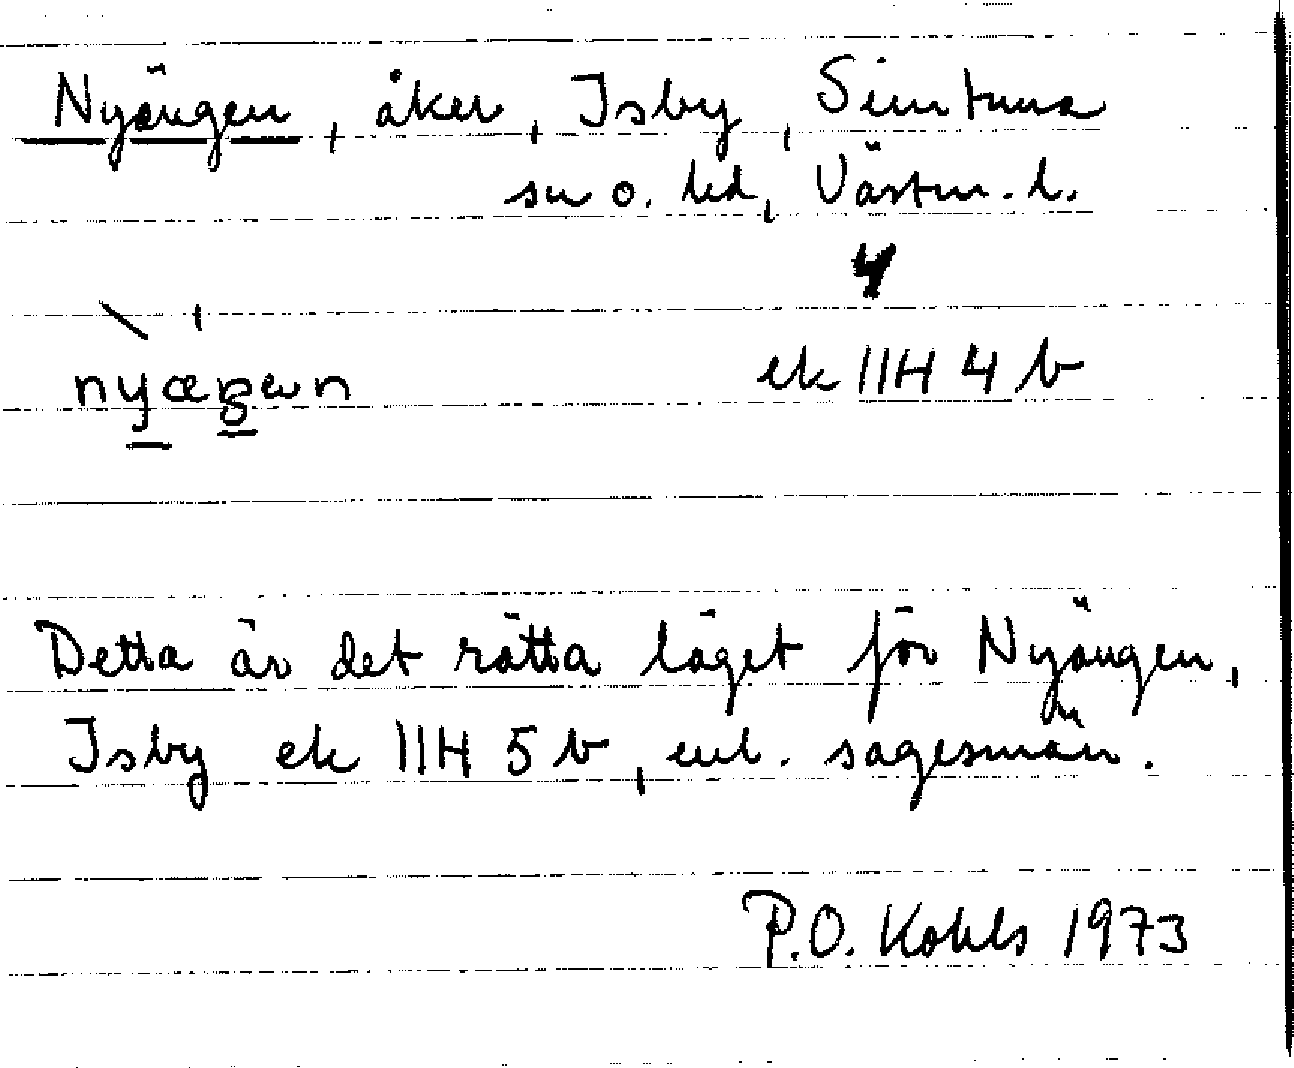 Nyängen, åker, Isby, Simtuna
sn o. hd, Västm. l.
4
ek 11H 4 b
Detta är det rätta läget för Nyängen,
Isby ek 11H 5 b, enl. sagesmän.
P.O. Kohls 1973